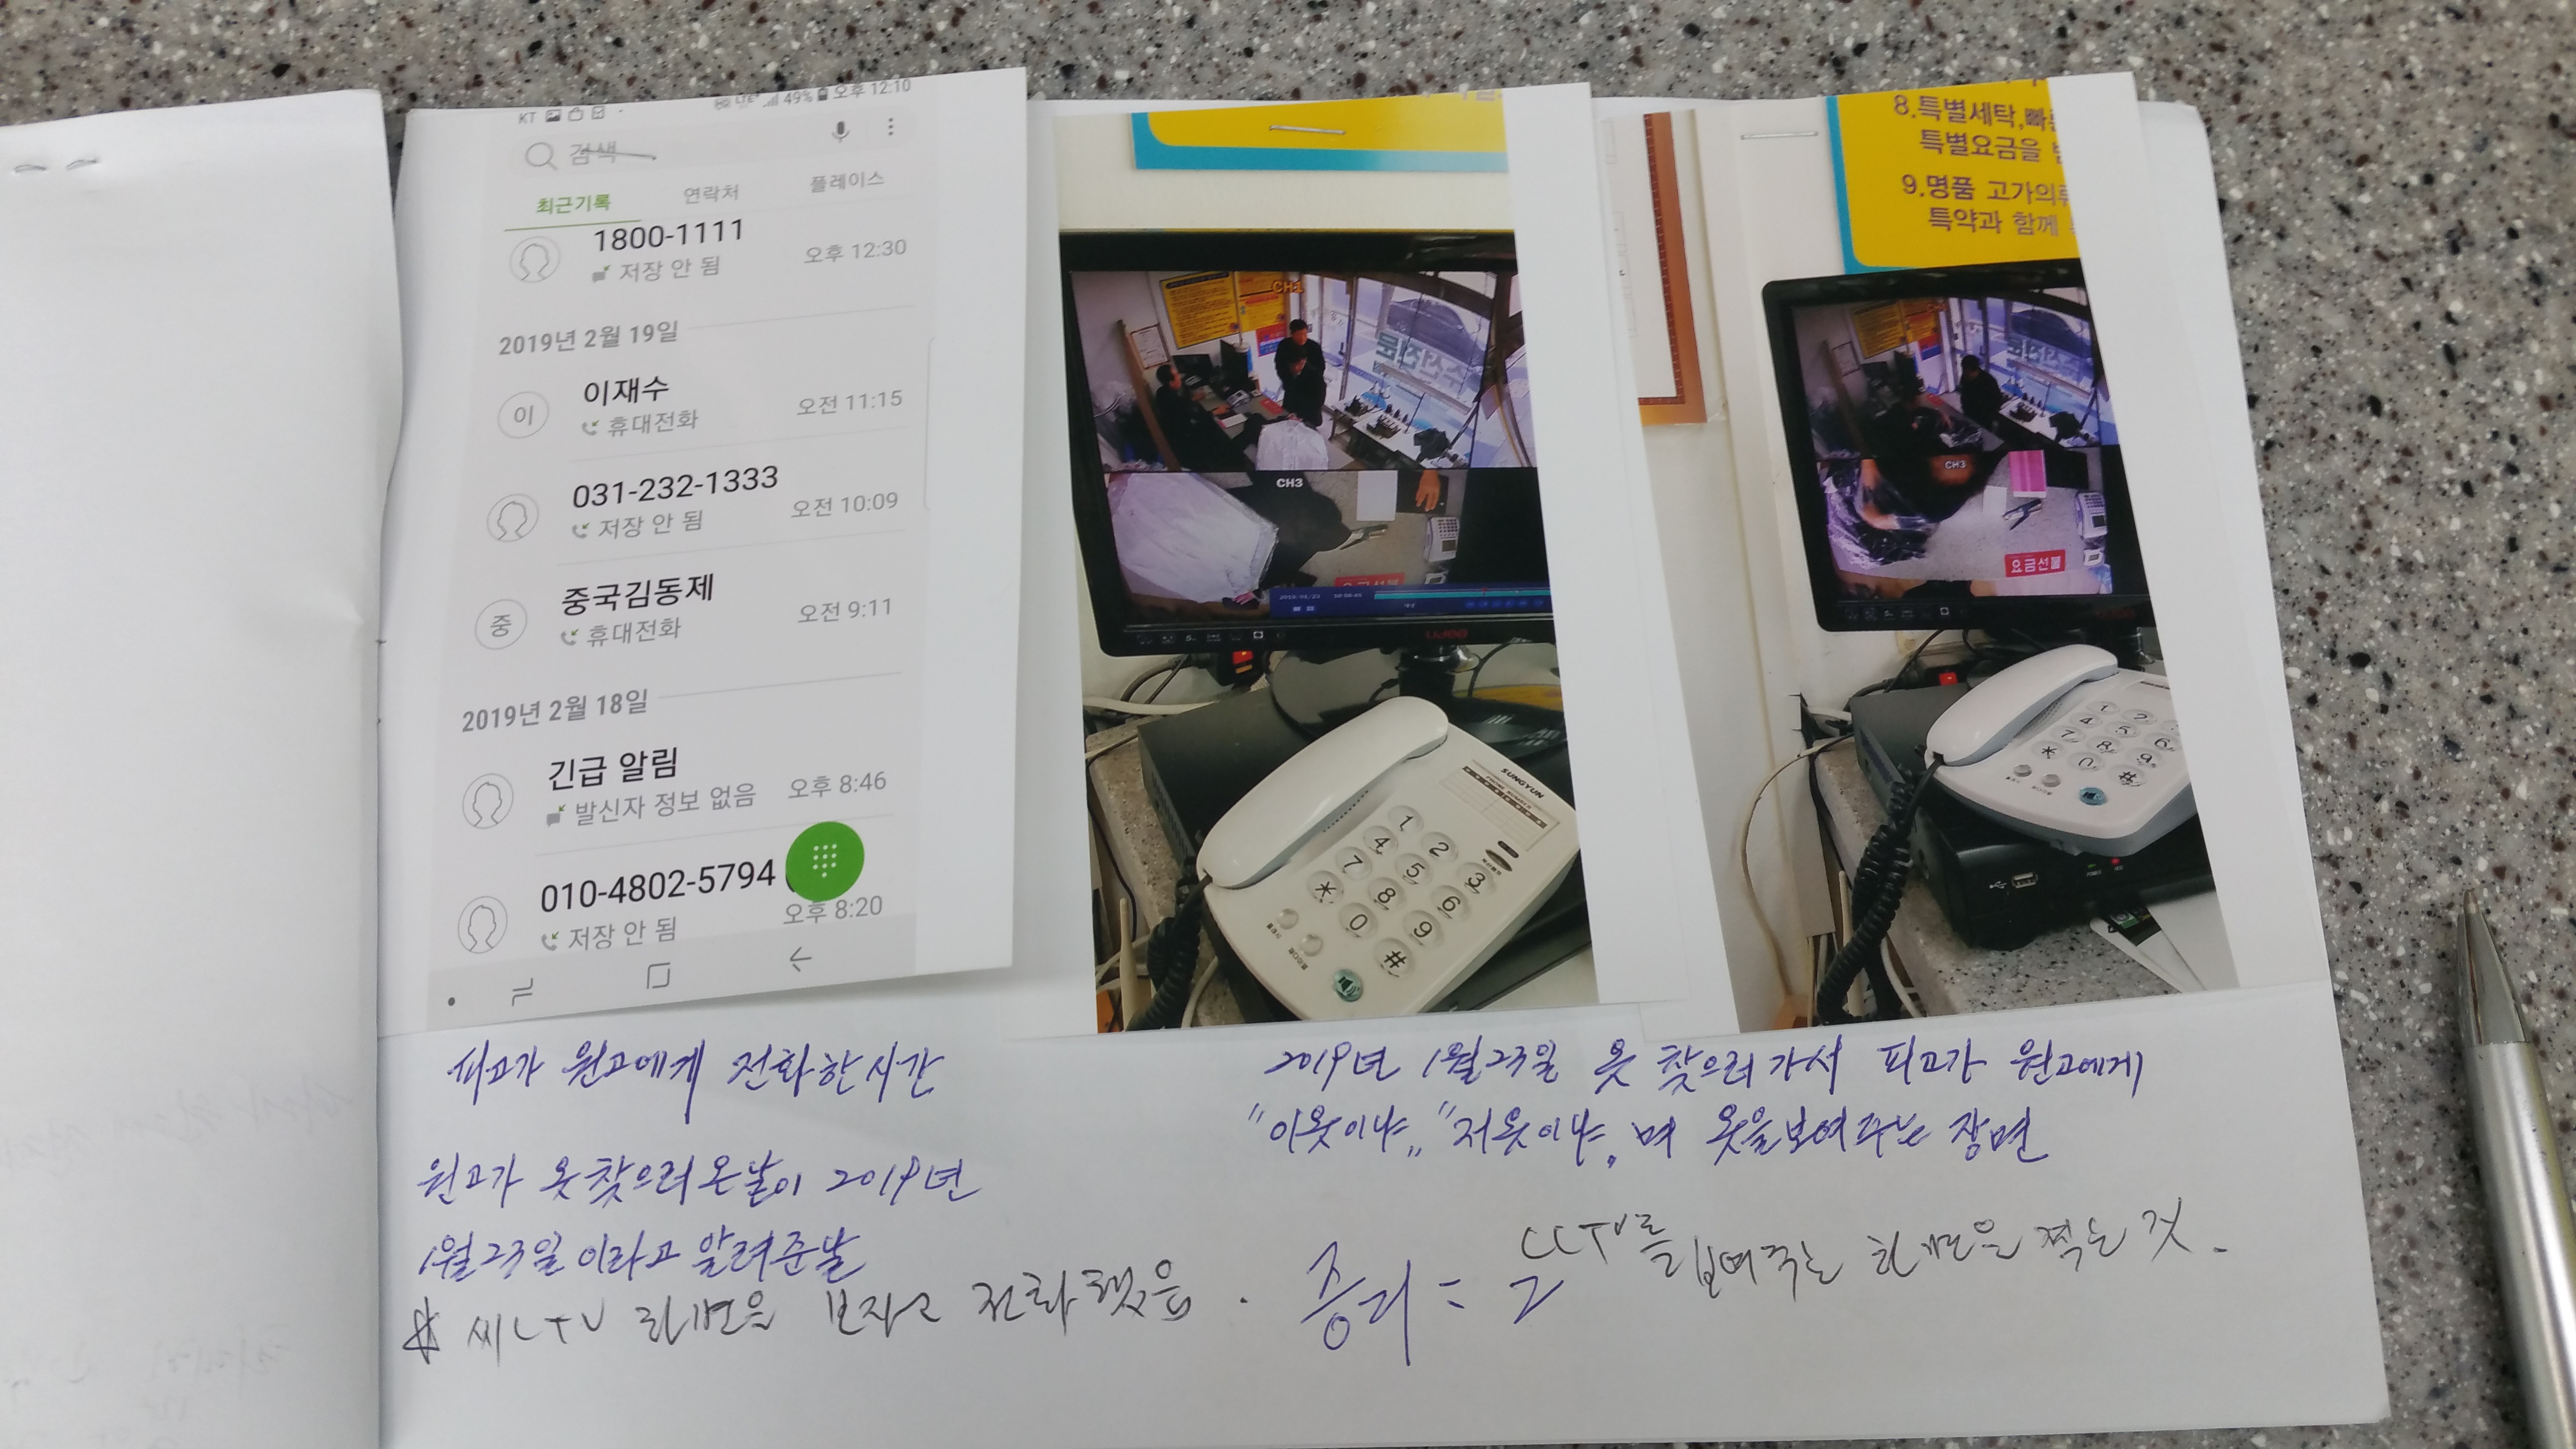 KT
49% 오후 12:10
검색
최근기록 연락처 플레이스
1800-1111
저장 안 됨 오후 12:30
2019년 2월 19일
이
이재수
휴대전화 오전 11:15
031-232-1333
저장 안 됨 오전 10:09
중
중국김동제
휴대전화 오전 9:11
2019년 2월 18일
긴급 알림
발신자 정보 없음 오후 8:46
010-4802-5794
저장 안 됨 오후 8:20
피고가 원고에게 전화한시간
원고가 옷찾으러온날이 2019년
1월23일이라고 알려준날
CCTV 화면을 보자고 전화했음.
CH3
SUNGYUN
1 2 3
4 5 6
7 8 9
* 0 #
8.특별세탁,빠
특별요금을
9.명품 고가의
특약과 함께
CH3
요금선불
1 2
4 5 6
7 8 9
* 0 #
2019년 1월23일 옷 찾으러가서 피고가 원고에게
"이옷이냐" "저옷이냐" 며 옷을보여주는 장면
증거= CCTV를 보여주는 화면을 찍은 것.